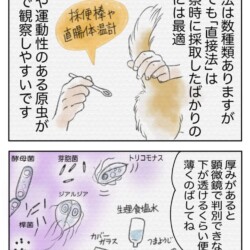 法は数種類ありますが
でも「直接法」は
察時に採取したばかりの
には最適
採便棒や
直腸体温計
や運動性のある原虫が
で観察しやすいです
厚みがあると
顕微鏡で判別できな
下が透けるくらい便
薄くのばしてね
酵母菌
芽胞菌
トリコモナス
ジアルジア
桿菌
生理食塩水
カバー
ガラス
つまようじ